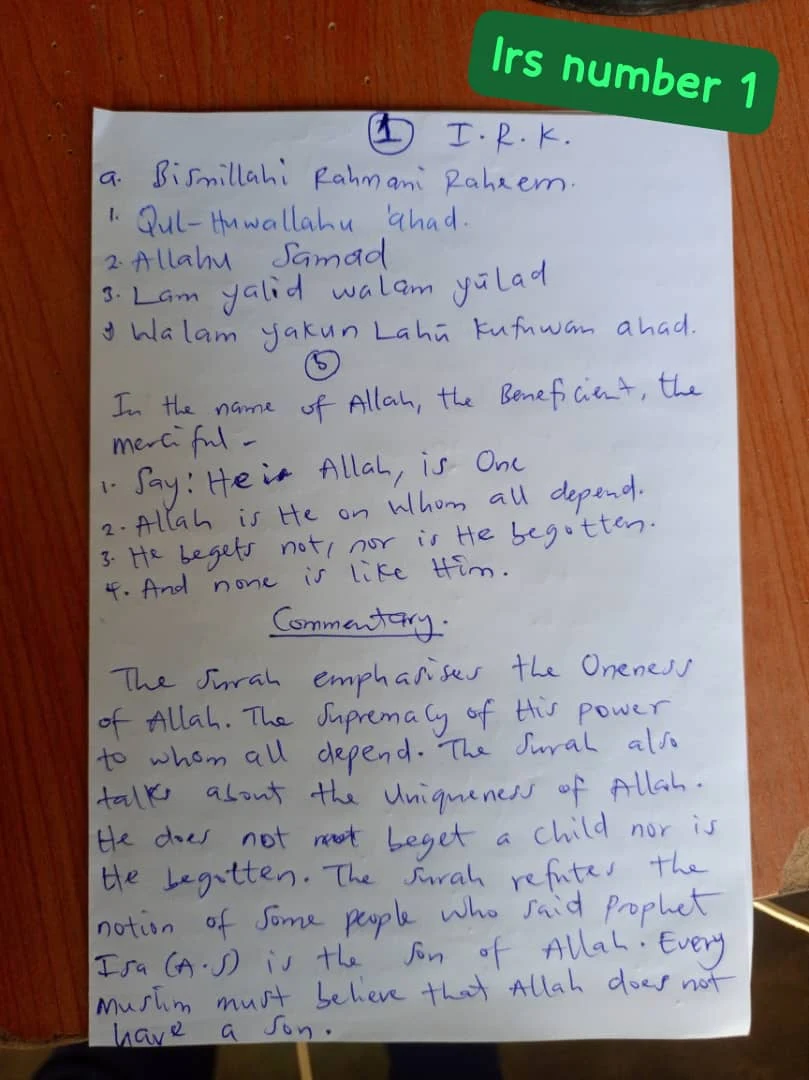 Irs number 1
1 I.R.K.
a. Bismillahi Rahmani Raheem.
1. Qul-Huwallahu 'ahad.
2. Allahu Samad
3. Lam yalid walam yūlad
Walam yakun Lahū Kufuwan ahad.
5
In the name of Allah, the Beneficient, the
merciful -
1. Say: He is Allah, is One
2. Allah is He on Whom all depend.
3. He begets not, nor is He begotten.
4. And none is like Him.
Commentary.
The Surah emphasises the Oneness
of Allah. The Supremacy of His power
to whom all depend. The Surah also
talks about the Uniqueness of Allah.
He does not beget a child nor is
He begotten. The Surah refutes the
notion of some people who said Prophet
Isa (A.S) is the son of Allah. Every
Muslim must believe that Allah does not
have a son.